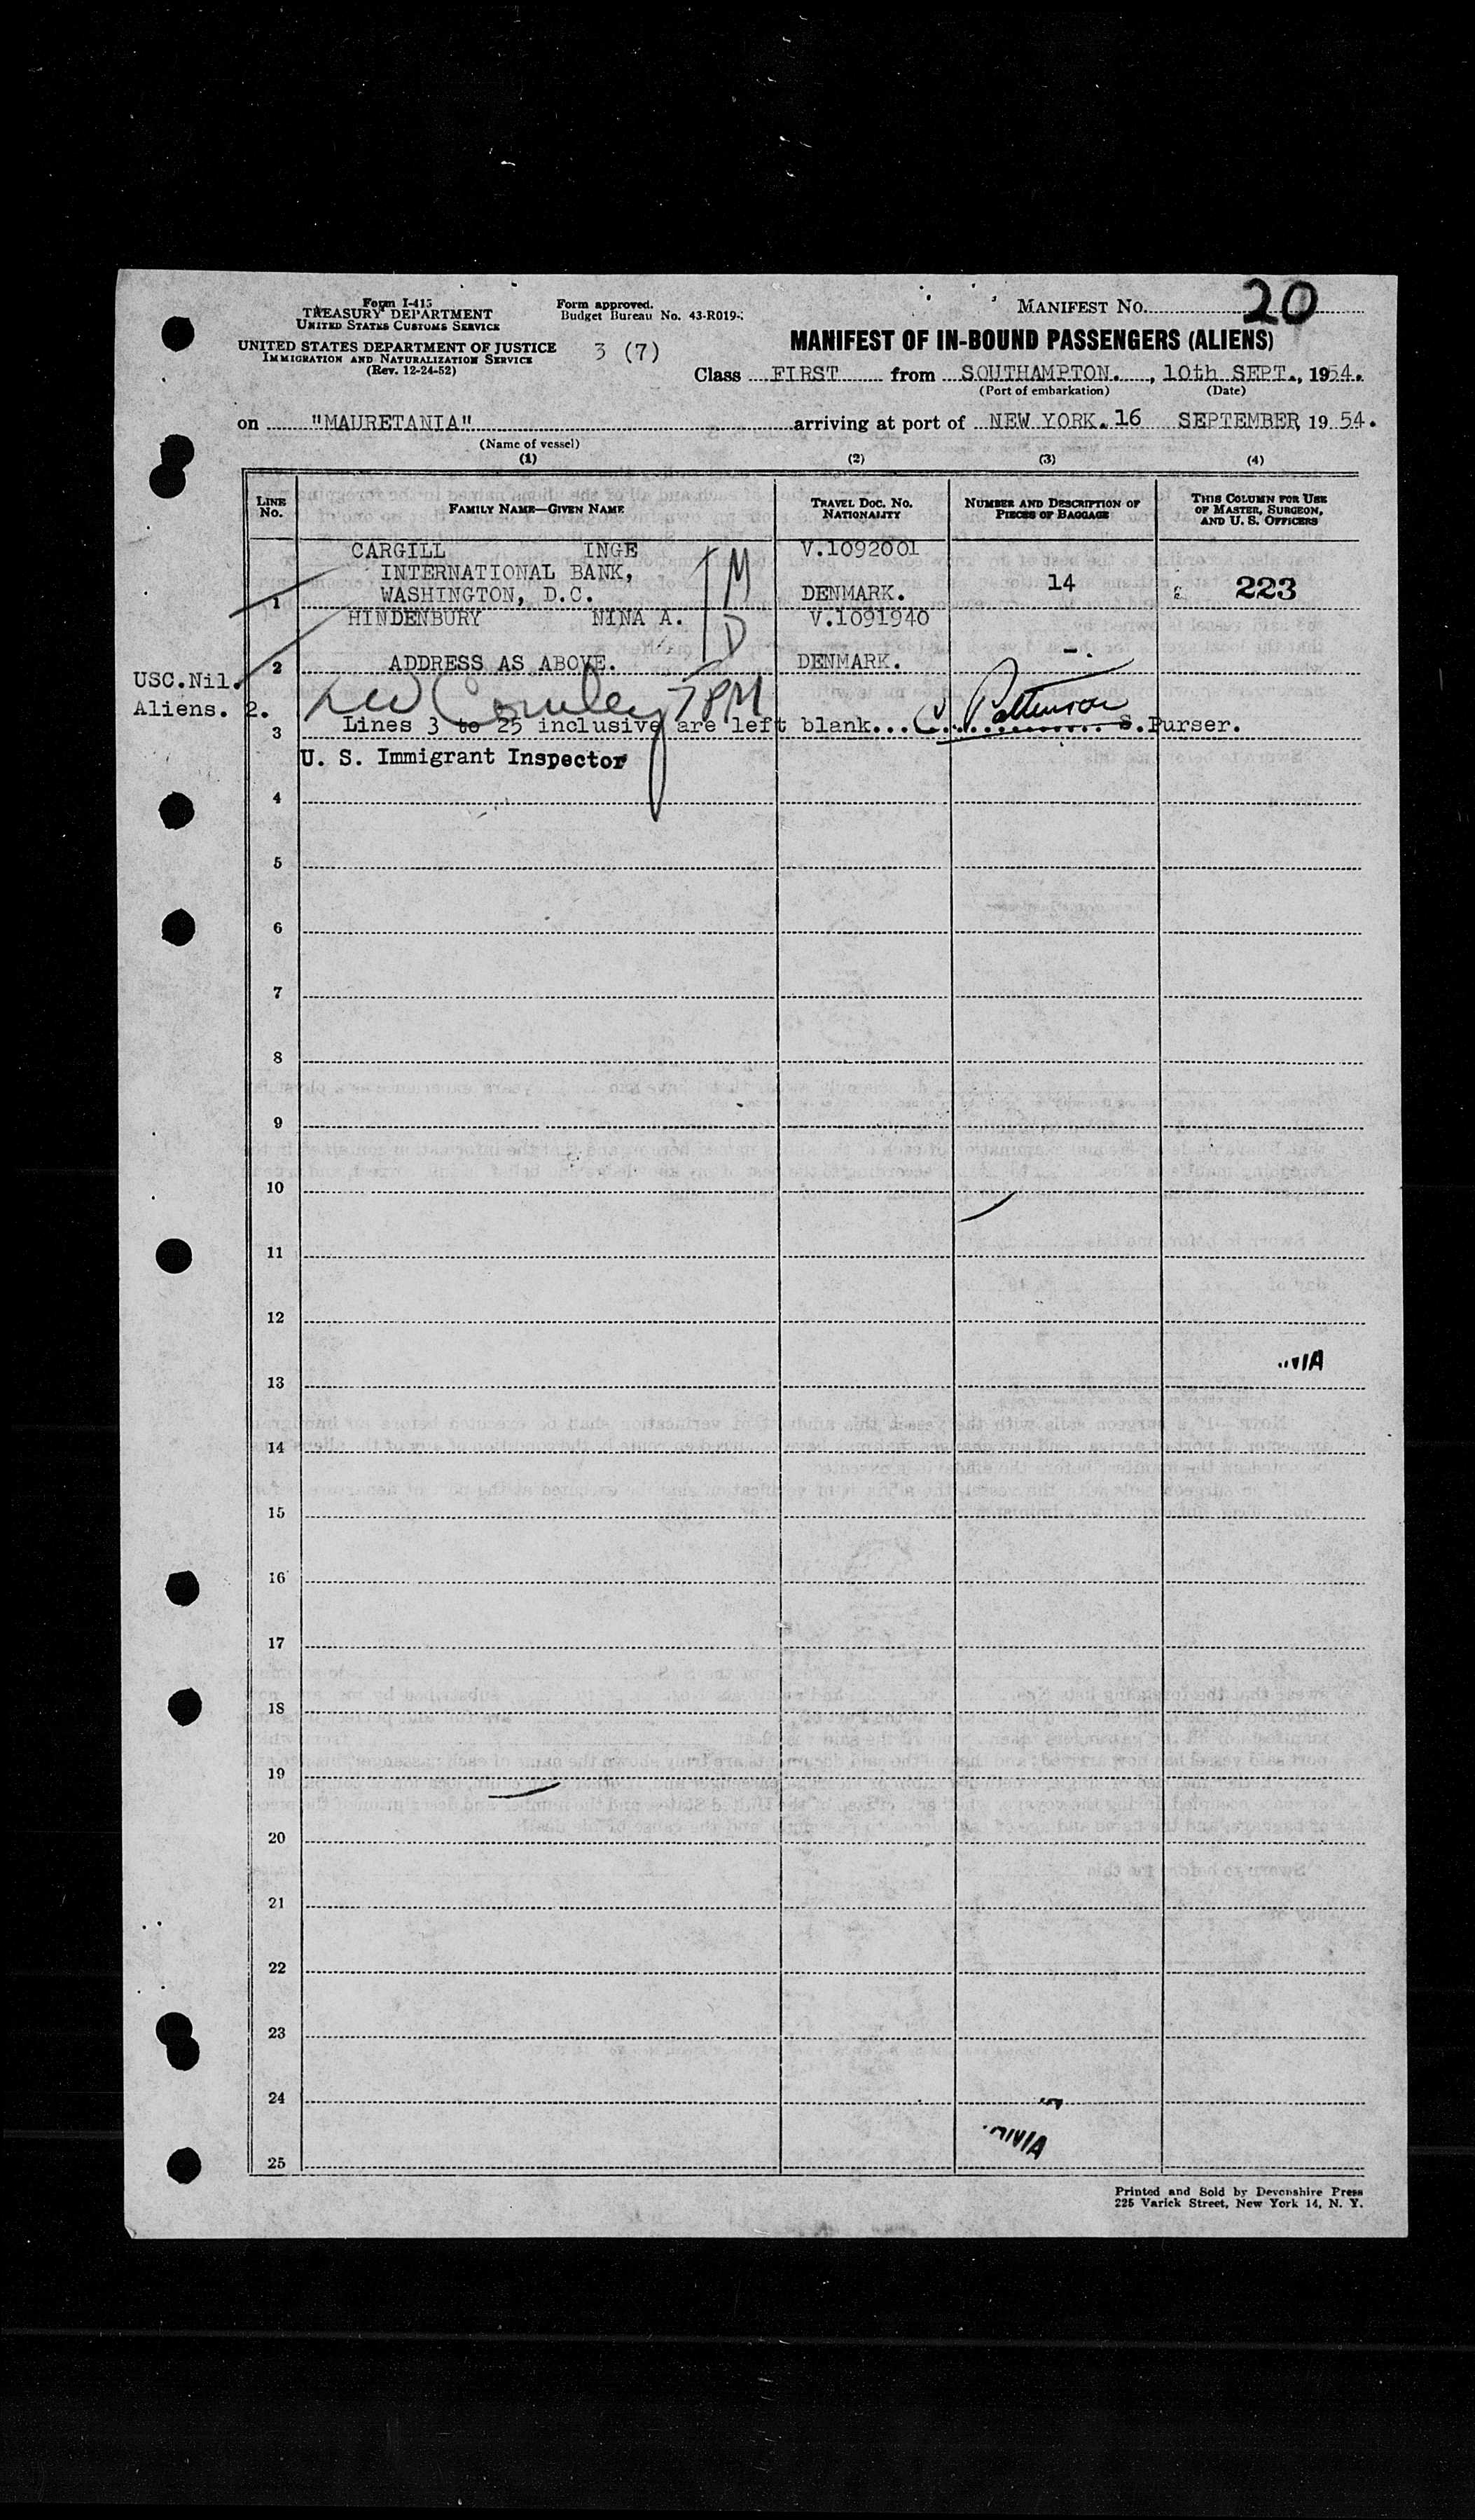 Form I-415
TREASURY DEPARTMENT
UNITED STATES CUSTOMS SERVICE
UNITED STATES DEPARTMENT OF JUSTICE
IMMIGRATION AND NATURALIZATION SERVICE
(Rev. 12-24-52)
Form approved.
Budget Bureau No. 43-R019-
3 (7)
MANIFEST NO. 20
MANIFEST OF IN-BOUND PASSENGERS (ALIENS)
Class FIRST from SOUTHAMPTON. , 10th SEPT., 1954.
(Port of embarkation) (Date)
on "MAURETANIA" arriving at port of NEW YORK. 16 SEPTEMBER 19 54.
(Name of vessel)
(1) (2) (3) (4)
LINE NO. FAMILY NAME—GIVEN NAME TRAVEL DOC. NO. NATIONALITY NUMBER AND DESCRIPTION OF PIECES OF BAGGAGE THIS COLUMN FOR USE OF MASTER, SURGEON, AND U. S. OFFICERS
CARGILL INGE V.1092001
INTERNATIONAL BANK, M
1 WASHINGTON, D.C. DENMARK. 14 223
HINDENBURY NINA A. D V.1091940
2 ADDRESS AS ABOVE. DENMARK. -.
USC.Nil.
Aliens. 2.
3 Lines 3 to 25 inclusive are left blank... Patterson S.Purser.
U. S. Immigrant Inspector
4
5
6
7
8
9
10
11
12
13
14
15
16
17
18
19
20
21
22
23
24
25
Printed and Sold by Devonshire Press
225 Varick Street, New York 14, N. Y.